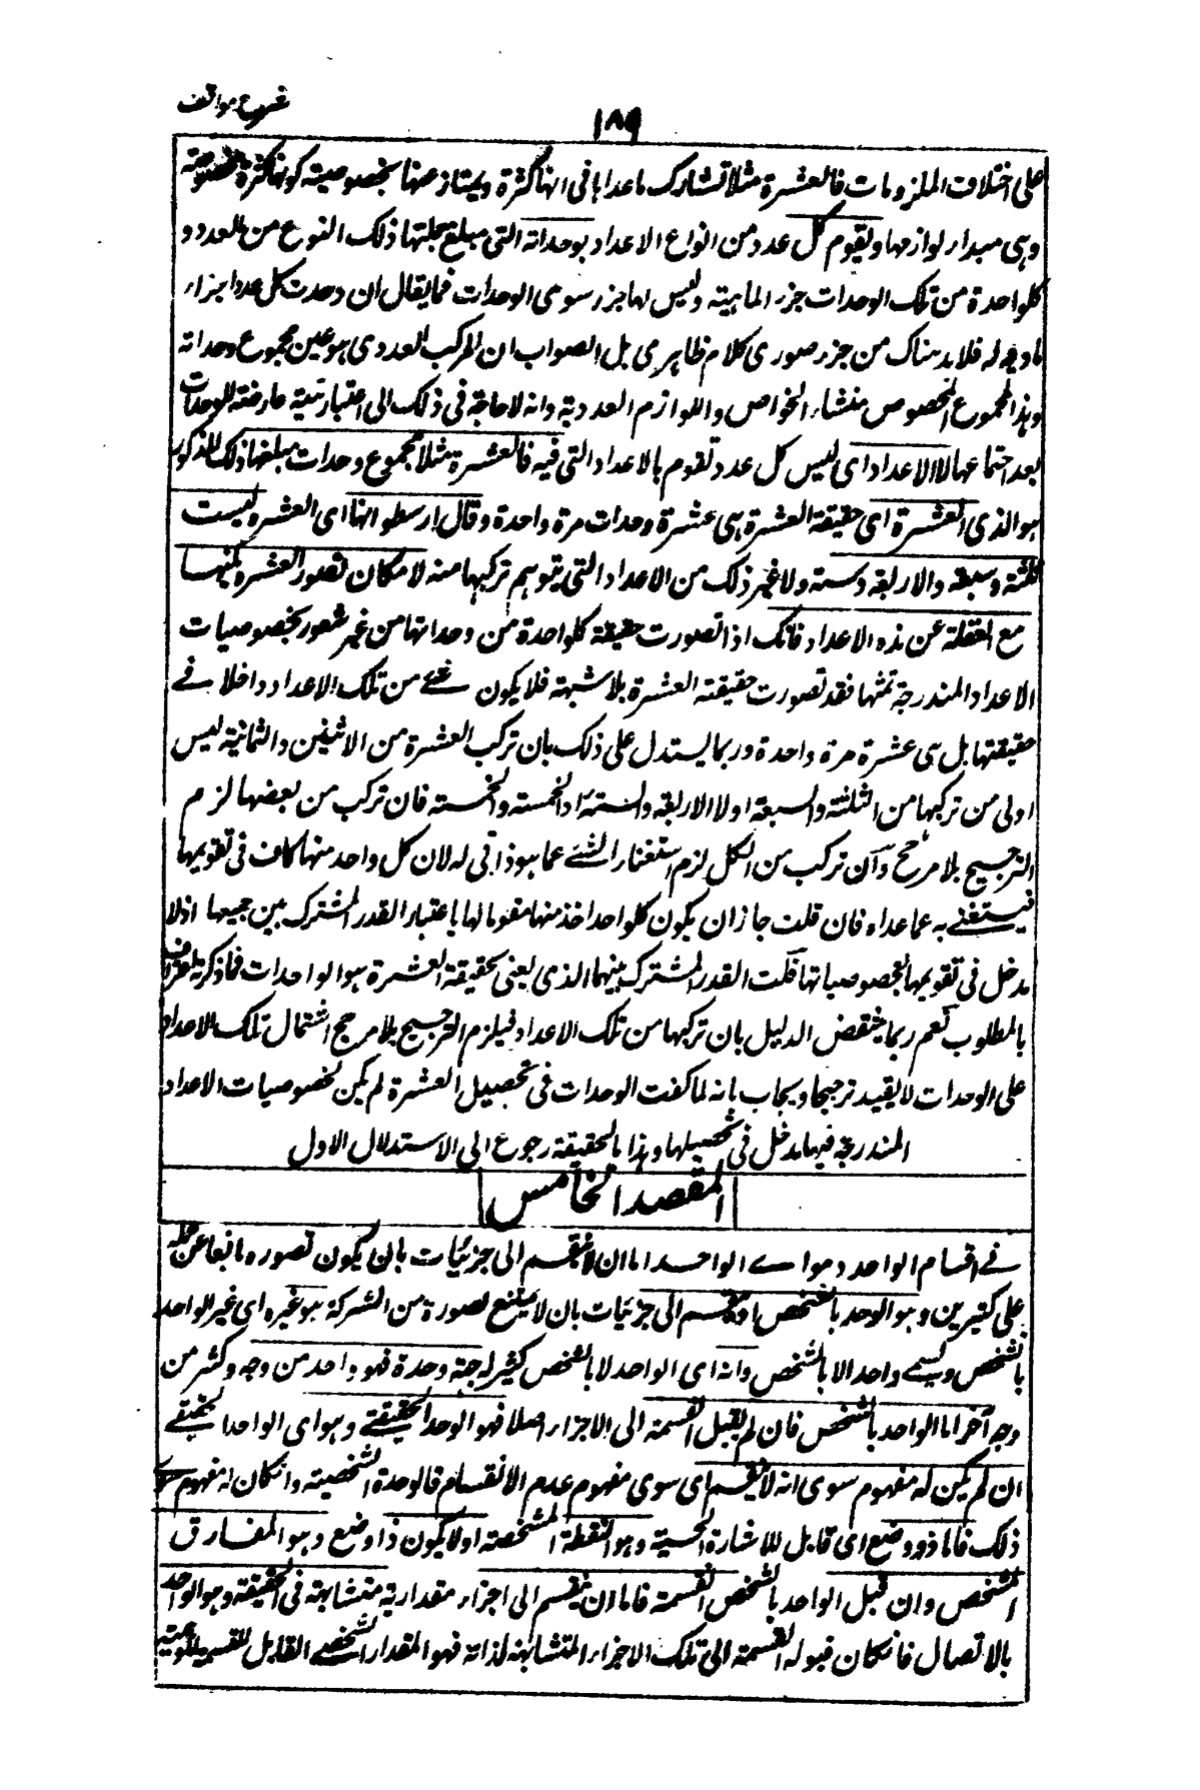 شرح مواقف
١٨٩
على اختلاف الملزومات فالعشرة مثلا تشارك ما عداها فى انها كثرة ويمتاز عنها بخصوصية كونها كثرة مخصوصة
وهى مبدا لوازمها وتقوم كل عدد من انواع الاعداد بوحداته التى مبلغ جملتها ذلك النوع من العدد و
كلواحدة من تلك الوحدات جزء لماهيته وليس لها جزء سوى الوحدات فما يقال ان وحدت كل عدد اجزاء
مادية له فلا بد هناك من جزء صورى كلام ظاهرى بل الصواب ان المركب العددى هو عين مجموع وحداته
وهذا المجموع المخصوص منشاء الخواص واللوازم العددية وانه لا حاجة فى ذلك الى اعتبار هيئة عارضة للوحدات
بعد اجتماعها لا الاعداد اى ليس كل عدد تقوم بالاعداد التى فيه فالعشرة مثلا مجموع وحدات مبلغها ذلك المذكور
هو الذى العشرة اى حقيقة العشرة هى عشرة وحدات مرة واحدة وقال ارسطو انها اى العشرة ليست
ثلثة وسبعة والاربعة وستة ولا غير ذلك من الاعداد التى يتوهم تركبها منه لامكان تصور العشرة بكنهها
مع الغفلة عن هذه الاعداد فانك اذا تصورت حقيقة كلواحدة من وحداتها من غير شعور بخصوصيات
الاعداد المندرجة تحتها فقد تصورت حقيقة العشرة بلا شبهة فلا يكون شئ من تلك الاعداد داخلا فے
حقيقتها بل هى عشرة مرة واحدة وربما يستدل على ذلك بان تركب العشرة من الاثنين والثمانية ليس
اولى من تركبها من الثلثة والسبعة او لا الاربعة والستة او الخمسة والخمسة فان تركب من بعضها لزم
الترجيح بلا مرجح وان تركب من الكل لزم استغناء الشئ عما هو ذاتى له لان كل واحد منها كاف فى تقويمها
فيستغنے به عما عداه فان قلت جاز ان يكون كلواحد اخذ منها مقوما لها باعتبار القدر المشترك بين جميعها اذ لا
مدخل فى تقويمها لخصوصياتها قلت القدر المشترك بينهما الذى يعنى بحقيقة العشرة هو الواحدات فما ذكرته اعتراف
بالمطلوب نعم ربما ينتقض الدليل بان تركبها من تلك الاعداد فيلزم الترجيح بلا مرجح اشتمال تلك الاعداد
على الوحدات لا يفيد ترجيحا ويجاب بانه لما كفت الوحدات فى تحصيل العشرة لم يكن لخصوصيات الاعداد
المندرجة فيها مدخل فى تحصيلها وهذا بالحقيقة رجوع الى الاستدلال الاول
المقصد الخامس
فے اقسام الواحد وهو اے الواحد اما ان لا ينقسم الى جزئيات بان يكون تصوره مانعا عن حمله
على كثيرين وهو الواحد بالشخص او ينقسم الى جزئيات بان لا يمنع تصورة من الشركة هو غيره اى غير الواحد
بالشخص ويسمے واحد الا بالشخص وانه اى الواحد لا بالشخص كثير له جهة وحدة فهو واحد من وجه وكثير من
وجه آخر اما الواحد بالشخص فان لم يقبل القسمة الى الاجزاء اصلا فهو الواحد الحقيقے وهو اى الواحد الحقيقے
ان لم يكن له مفهوم سوى انه لا ينقسم اى سوى مفهوم عدم الانقسام فالوحدة الشخصية وانكان له مفهوم سوے
ذلك فاما ذو وضع اى قابل للاشارة الحسية وهو النقطة المشخصة او لا يكون ذا وضع وهو المفارق
المشخص وان قبل الواحد بالشخص القسمة فاما ان ينقسم الى اجزاء مقدارية متشابهة فى الحقيقة وهو الواحد
بالاتصال فانكان قبوله القسمة الى تلك الاجزاء المتشابهة لذاته فهو المقدار الشخصے القابل للقسمة الوهمية